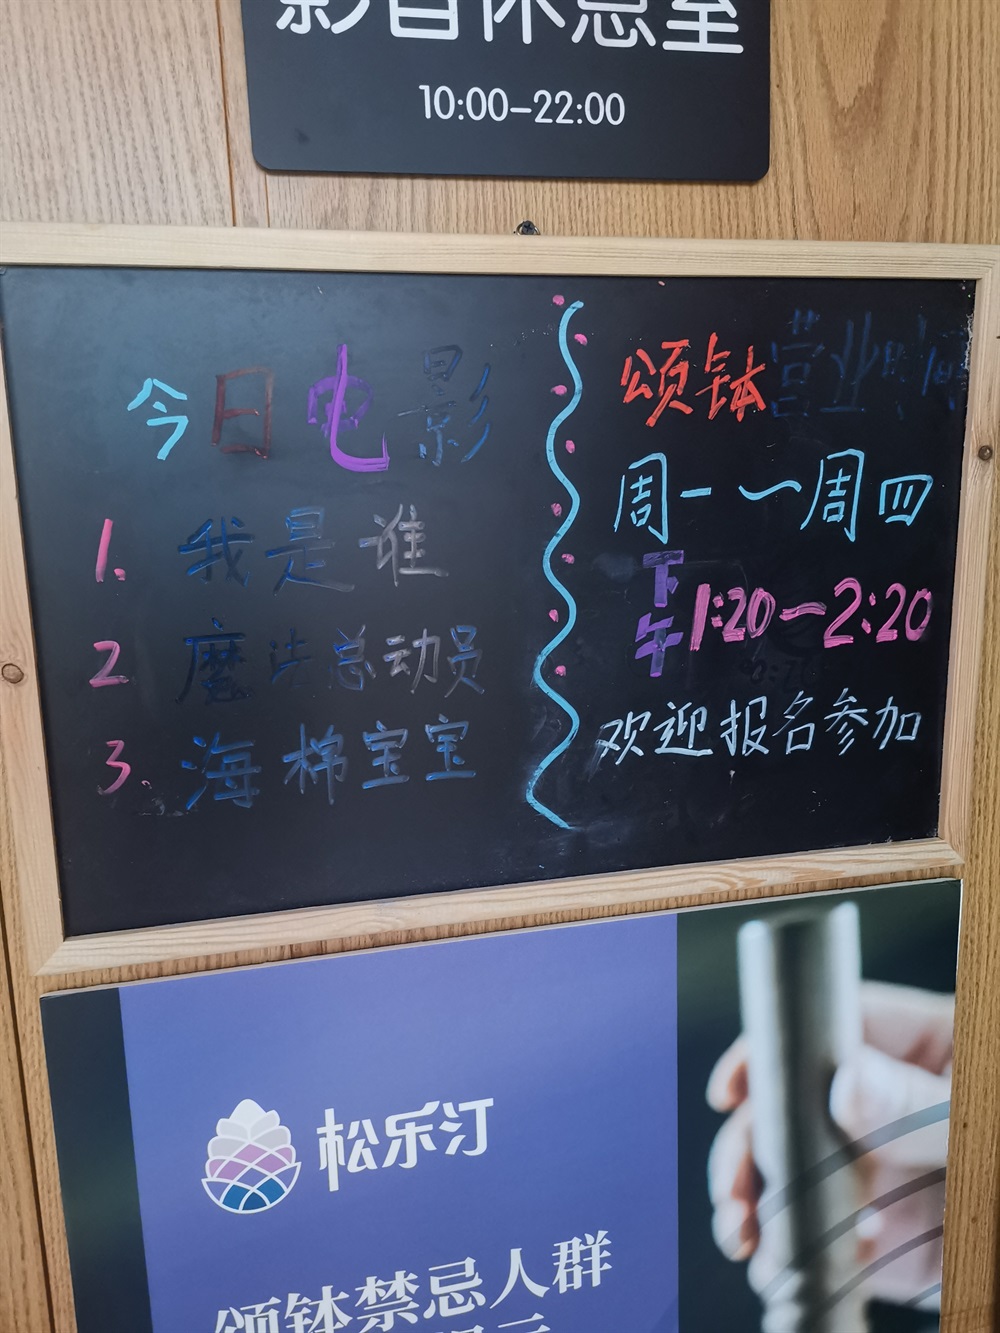 影音休息室
10:00-22:00
今日电影
1. 我是谁
2 魔法总动员
3. 海棉宝宝
颂钵营业时间
周一~周四
下午1:20—2:20
欢迎报名参加
松乐汀
颂钵禁忌人群